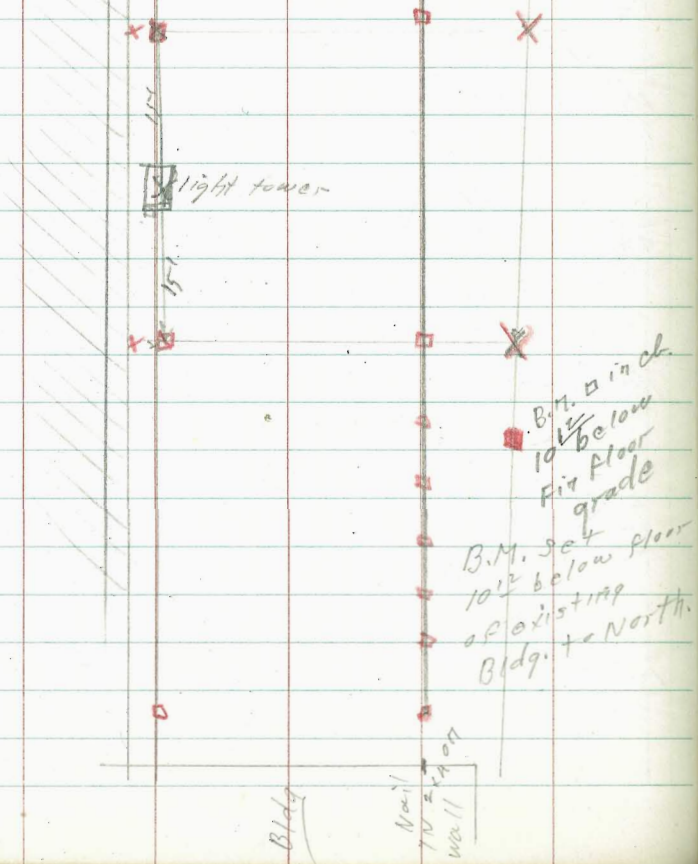 15'
light tower
15'
B.M. □ in cb.
10 12 below
Fin floor
grade
B.M. set
10 12 below floor
of existing
Bldg. to North.
Bldg
Nail
IN 2x4 on
wall